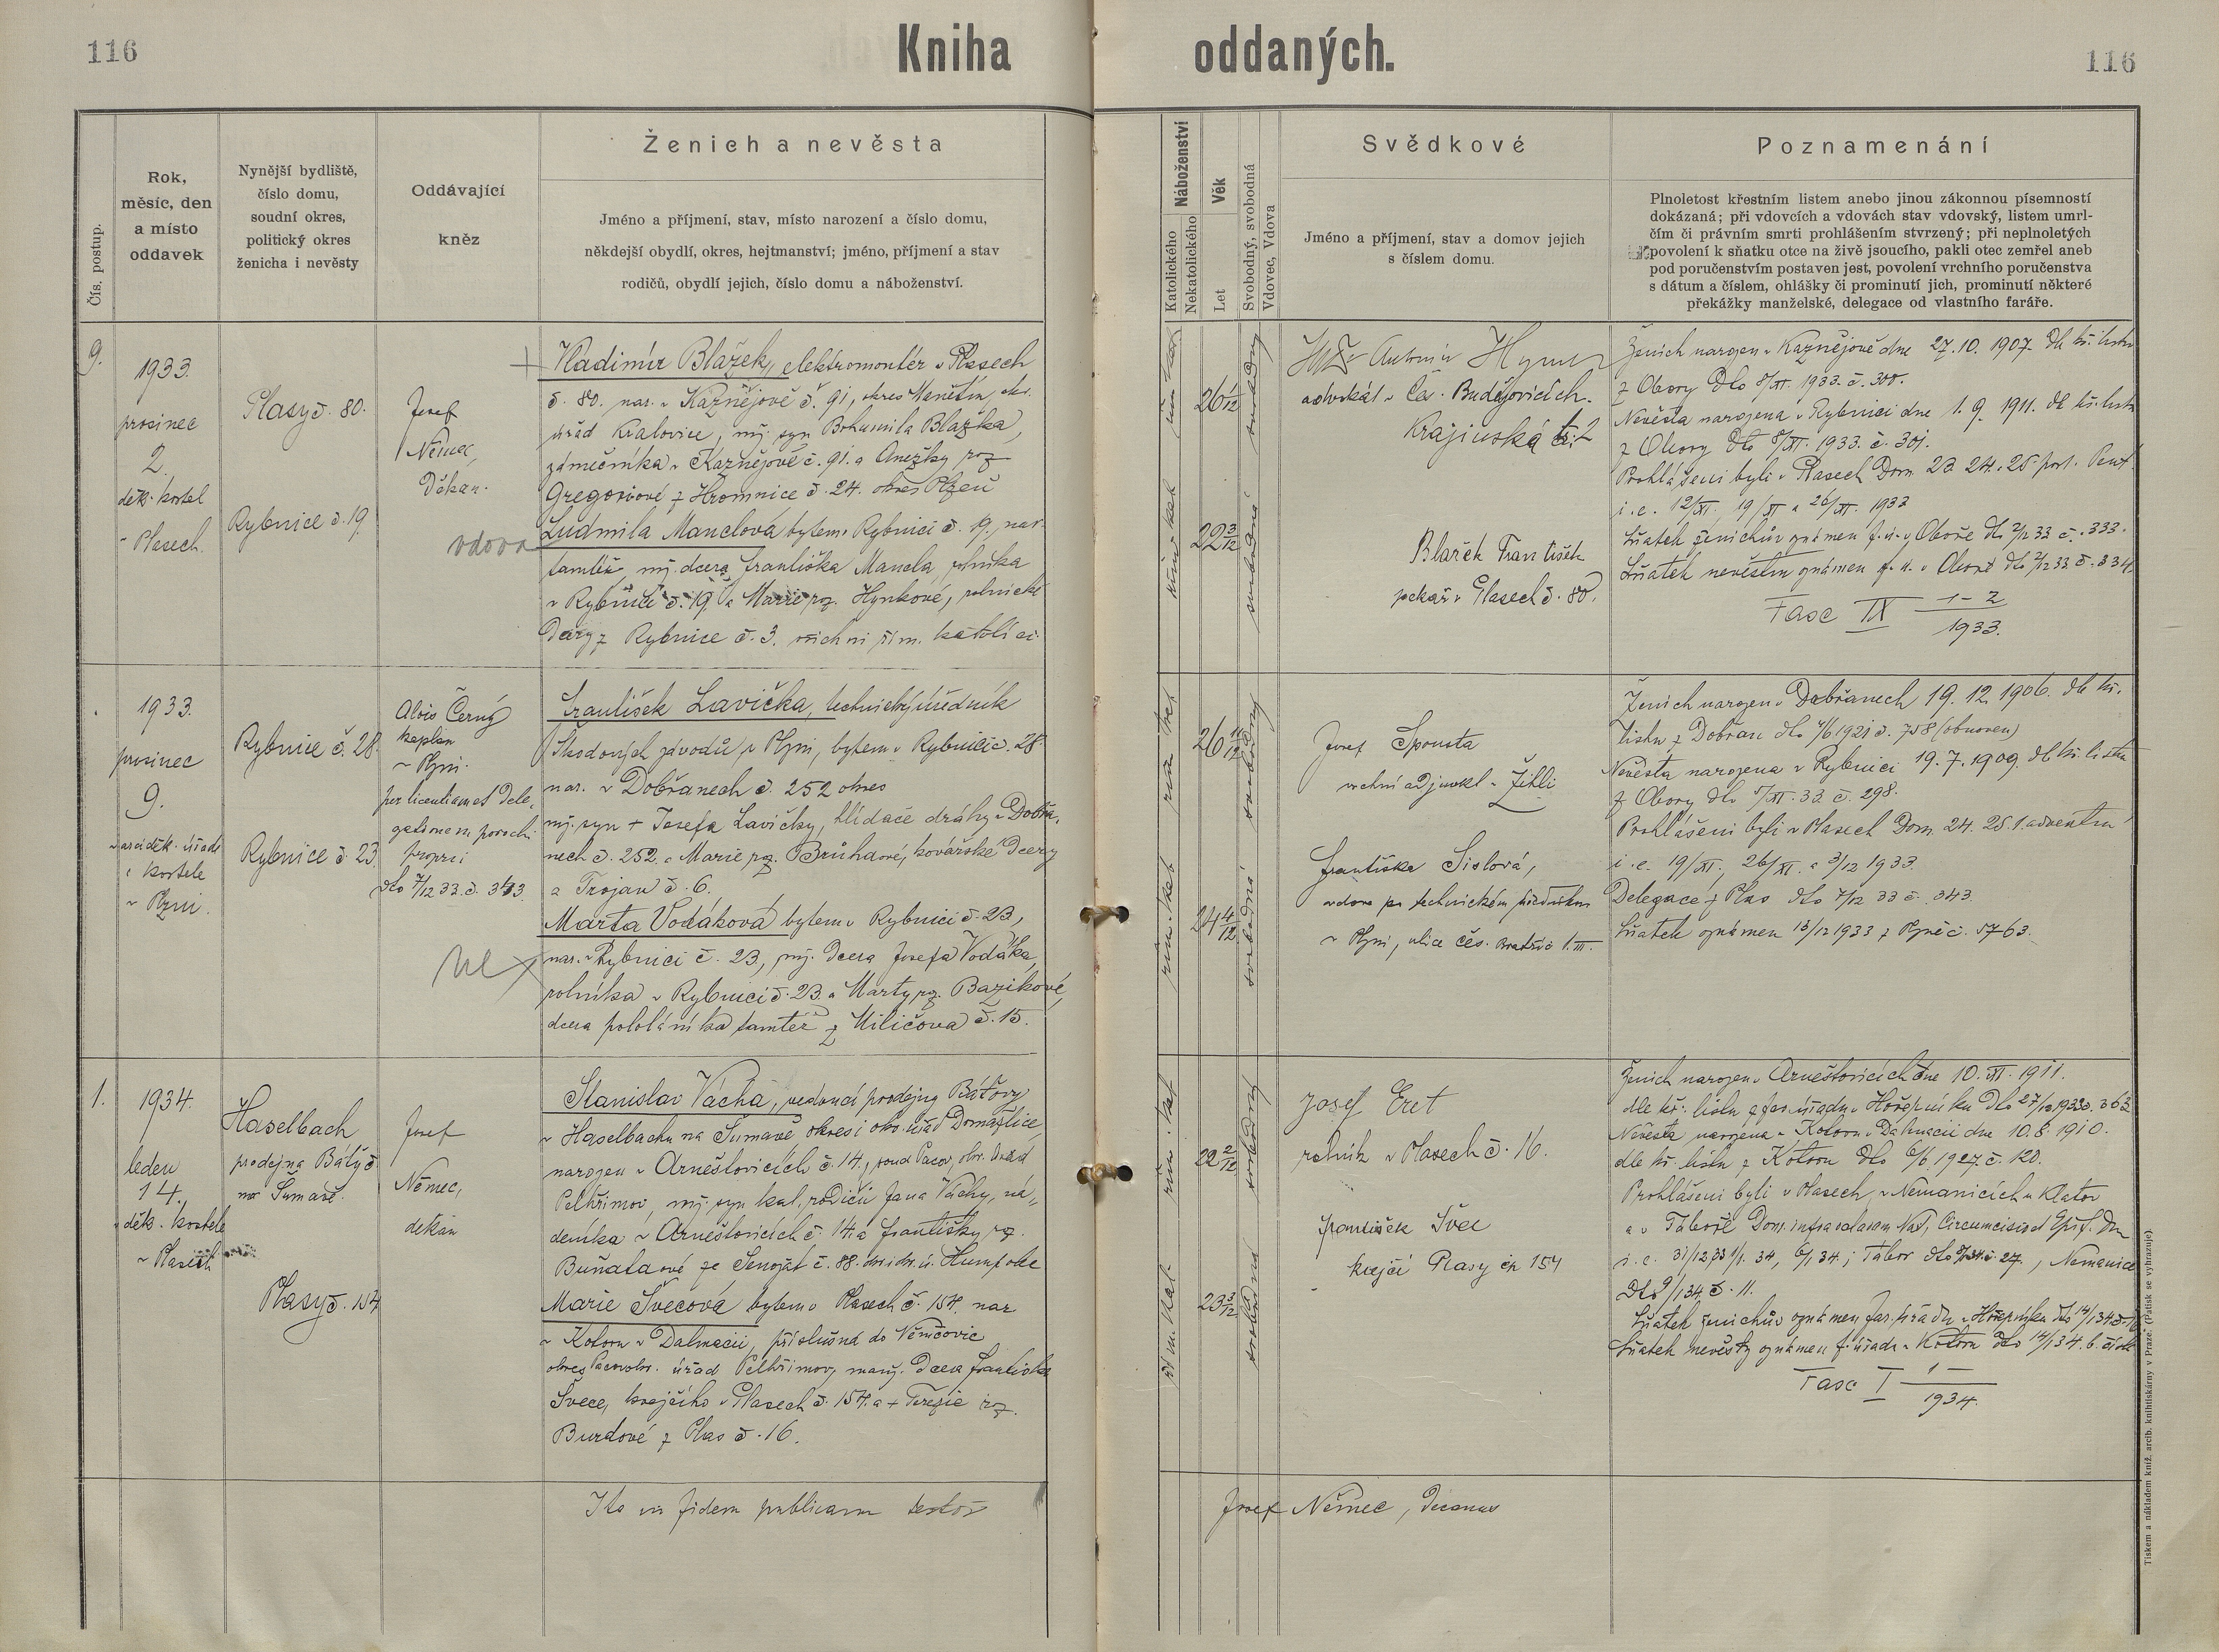 116
Kniha oddaných.
116
Čís. postup.
Rok,
měsíc, den
a místo
oddavek
Nynější bydliště,
číslo domu,
soudní okres,
politický okres
ženicha i nevěsty
Oddávající
kněz
Ženich a nevěsta
Jméno a příjmení, stav, místo narození a číslo domu,
někdejší obydlí, okres, hejtmanství; jméno, příjmení a stav
rodičů, obydlí jejich, číslo domu a náboženství.
Náboženství
Katolického
Nekatolického
Věk
Let
Svobodný, svobodná
Vdovec, Vdova
Svědkové
Jméno a příjmení, stav a domov jejich
s číslem domu.
Poznamenání
Plnoletost křestním listem anebo jinou zákonnou písemností
dokázaná; při vdovcích a vdovách stav vdovský, listem umrl-
čím či právním smrti prohlášením stvrzený; při neplnoletých
povolení k sňatku otce na živě jsoucího, pakli otec zemřel aneb
pod poručenstvím postaven jest, povolení vrchního poručenstva
s dátum a číslem, ohlášky či prominutí jich, prominutí některé
překážky manželské, delegace od vlastního faráře.
9.
1933.
prosinec
2.
děk. kostel
v Plasech.
Plasy č. 80.
Rybnice č. 19.
Josef
Němec,
Děkan.
vdova
Vladimír Blažek, elektromontér v Plasech
č. 80. nar. v Kaznějově č. 91, okres Manětín, okr.
úřad Kralovice, mj. syn Bohumila Blažka,
zámečníka v Kaznějově č. 91. a Anežky roz.
Gregoriové z Hromnice č. 24. okres Plzeň
Ludmila Manclová bytem v Rybnici č. 19, nar.
tamtéž, mj. dcera Františka Mancla, rolníka
v Rybnici č. 19. a Marie roz. Hynkové, rolnické
dcery z Rybnice č. 3. všichni řím. katolíci
26
22 3/12
Antonín
advokát v Čes. Budějovicích.
Krajinská
Blažek František
pekař v Plasech č. 80.
Ženich narozen v Kaznějově dne 27. 10. 1907. dle kř. listu
z Obory dto 8/XI. 1933. č. 300.
Nevěsta narozena v Rybnici dne 1. 9. 1911. dle kř. listu
z Obory dto 8/XI. 1933. č. 301.
Prohlášeni byli v Plasech Dom. 23. 24. 25. post. Pent.
i. e. 12/XI. 19/XI a 26/XI. 1933
Sňatek ženichův oznámen f. ú. v Oboře dto 2/12 33 č. 333.
Sňatek nevěstin oznámen f. ú. v Oboře dto 2/12 33 č. 334
Fasc IX 1-2
1933.
1933.
prosinec
9.
arciděk. úřadě
i kostele
v Plzni.
Rybnice č. 28.
Rybnice č. 23.
Alois Černý
kaplan
v Plzni.
per licentiam et dele-
gationem parochi
proprii
dto 7/12 33. č. 343.
František Lavička, technický úředník
Škodových závodů v Plzni, bytem v Rybnici č. 28.
nar. v Dobřanech č. 252 okres
mj. syn + Josefa Lavičky, hlídače dráhy v Dobřa-
nech č. 252. a Marie roz. Brůhové, kovářské dcery
z Trojan č. 6.
Marta Vodáková bytem v Rybnici č. 23,
nar. v Rybnici č. 23, mj. dcera Josefa Vodáka,
rolníka v Rybnici č. 23. a Marty roz. Bazikové,
dcera pololáníka tamtéž z Miličova č. 15.
26 11/12
24 4/12
Josef Spousta
vrchní adjunkt v Žihli
Františka Sislová,
vdova po technickém úředníku
v Plzni, ulice čes. bratří č. 1. III.
Ženich narozen v Dobřanech 19. 12. 1906. dle kř.
listu z Dobřan dto 4/6 1921 č. 758 (obnoven)
Nevěsta narozena v Rybnici 19. 7. 1909. dle kř. listu
z Obory dto 5/XI. 33. č. 298.
Prohlášeni byli v Plasech Dom. 24. 25. 1. adventu
i. e. 19/XI., 26/XI. a 3/12 1933.
Delegace z Plas dto 7/12 33 č. 343.
Sňatek oznámen 13/12 1933 z Plzně č. 5763.
1.
1934.
leden
14.
děk. kostele
v Plasech
Haselbach
prodejna Bati č
na Šumavě.
Plasy č. 154
Josef
Němec,
děkan
Stanislav Vácha, vedoucí prodejny Báťovy
v Haselbachu na Šumavě, okres i okr. úřad Domažlice,
narozen v Arneštovicích č. 14., soud Pacov, okr. úřad
Pelhřimov, mj. syn kat. rodičů Jana Váchy, ná-
deníka v Arneštovicích č. 14. a Františky roz.
Buňatové ze Senožat č. 88. okr. i okr. ú. Humpolec
Marie Švecová bytem v Plasech č. 154. nar
v Kotoru v Dalmacii, příslušná do Němčovic
okres Pacov okr. úřad Pelhřimov, manž. dcera Františka
Švece, krejčího v Plasech č. 154. a + Terezie roz.
Burdové z Plas č. 16.
22 2/12
23 3/12
Josef Eret
rolník v Plasech č. 16.
František Švec
krejčí Plasy čp 154
Ženich narozen v Arneštovicích dne 10. XI. 1911.
dle kř. listu z far. úřadu v Hořepníku dto 27/12 1933 č. 363
Nevěsta narozena v Kotoru v Dalmacii dne 10. 8. 1910.
dle kř. listu z Kotoru dto 6/6 1927 č. 120.
Prohlášeni byli v Plasech, v Nemanicích u Klatov
a v Táboře Dom. infra octavam Nat, Circumcisio et Epif. Dni
i. e. 31/12 33 1/1. 34, 6/1 34.; Tábor dto č. 27., Nemanice
Dto 9/1 34. č. 11.
Sňatek ženichův oznámen far. úřadu v Hořepníku dto 14/1 34
Sňatek nevěsty oznámen f. úřadu v Kotoru dto 14/1 34. č.
Fasc I 1
1934.
Ita in fidem publicam testor Josef Němec, Decanus
Tiskem a nákladem kníž. arcib. knihtiskárny v Praze. (Patisk se vyhrazuje)